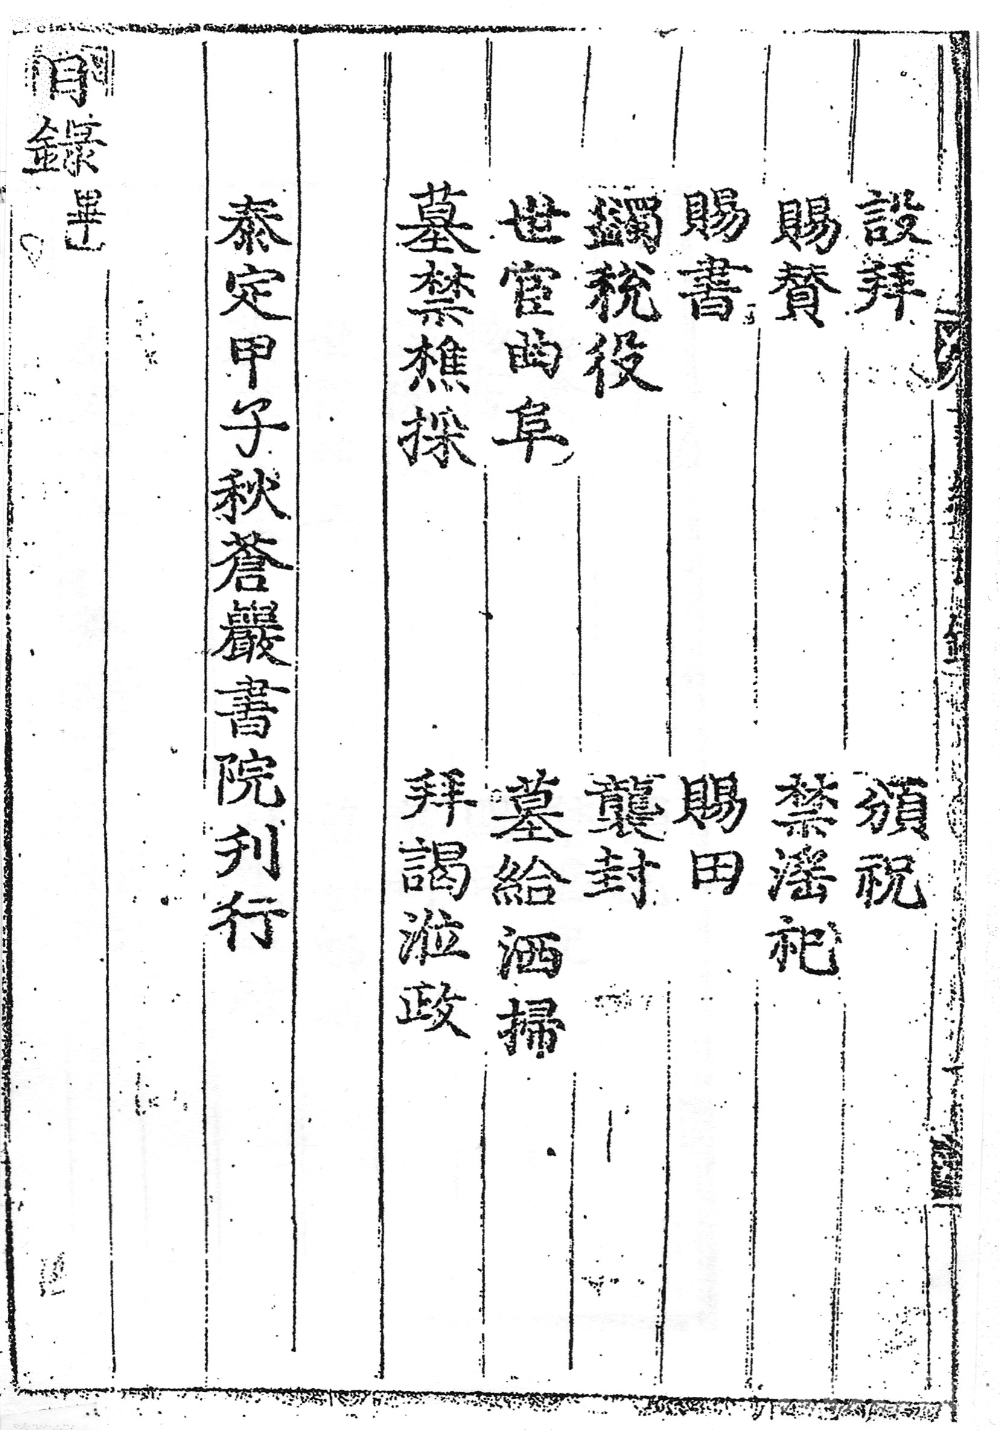 設拜　頒祝
賜贊　禁滛祀
賜書　賜田
蠲稅役　襲封
世宦曲阜　墓給洒掃
墓禁樵採　拜謁涖政
泰定甲子秋蒼巖書院刋行
目錄畢